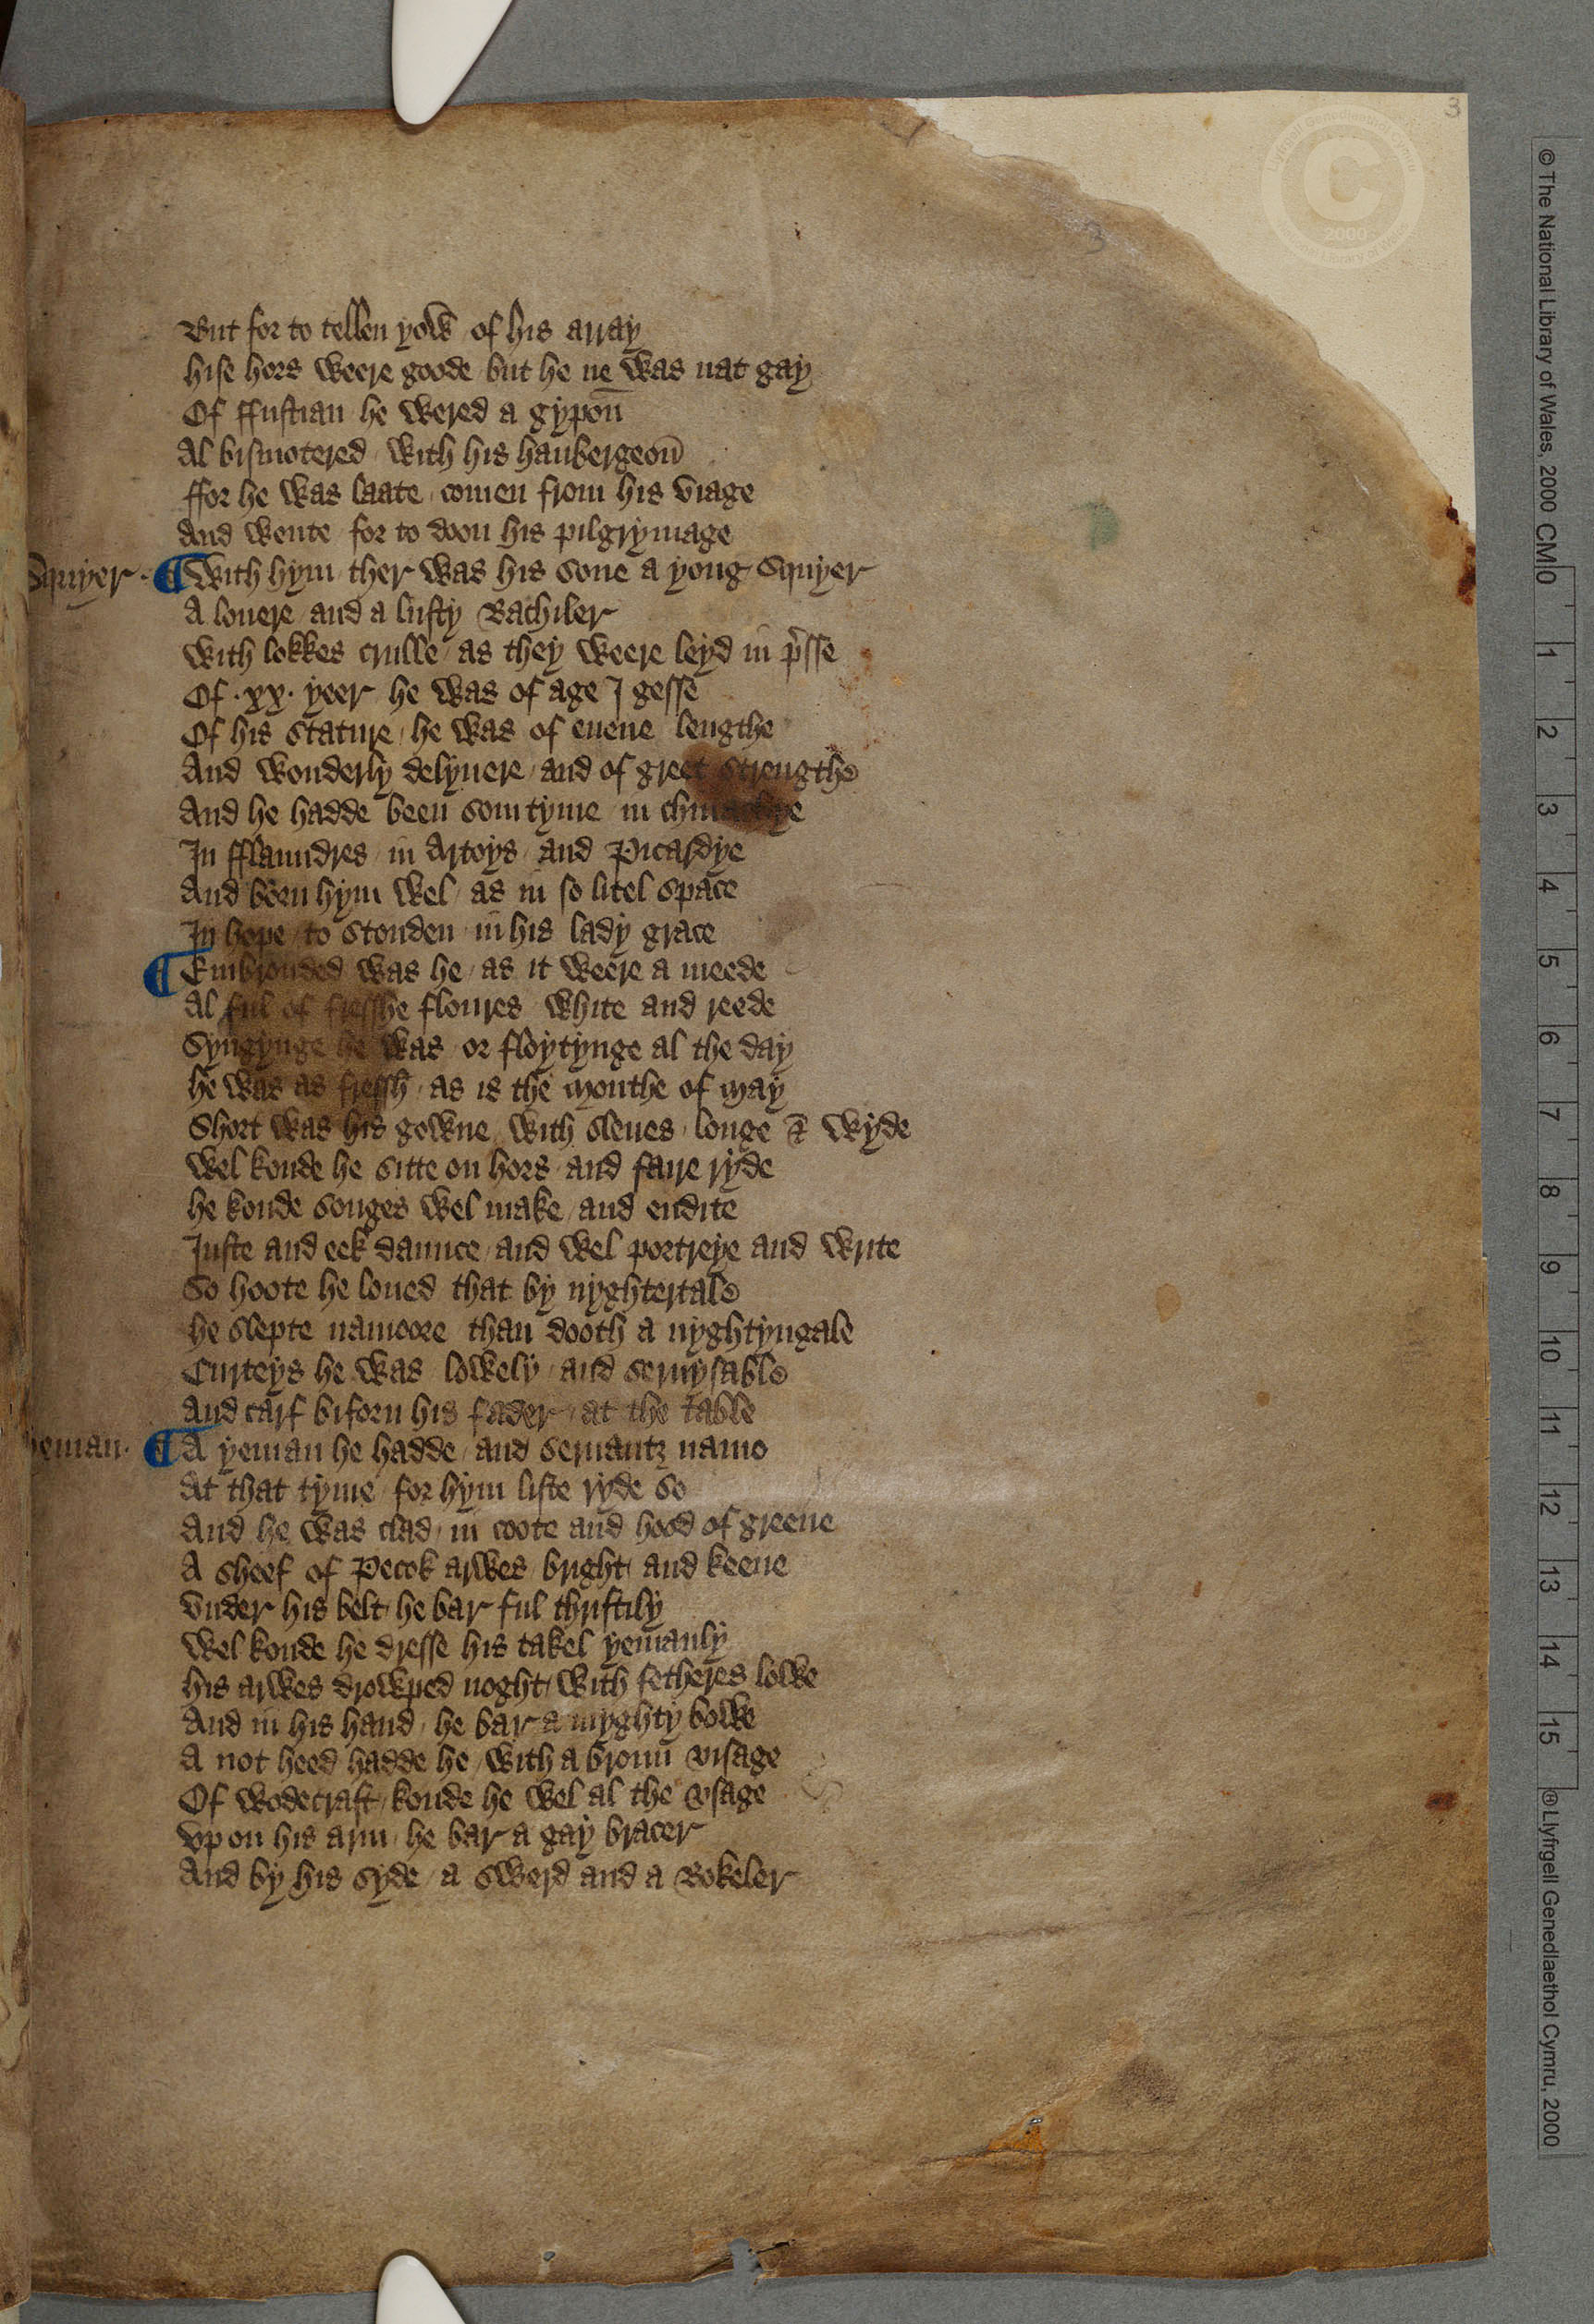 3
3
But for to tellen yow / of his array
hise hors weere goode / but he ne was nat gay
Of ffustian he wered a gypon̄
Al bismotered / with his haubergeon̄
ffor he was laate / comen from his viage
And wente / for to doon his pilgrymage
Squyer · ¶ With hym / ther was his sone a yong Squyer
A louere / and a lusty Bachiler
With lokkes crulle / as they weere leyd in p̄sse
Of ·xx· yeer he was of age I gesse
Of his stature / he was of euene lengthe
And wonderly delyuere / and of greet strengthe
And he hadde been somtyme in chiuachye
In fflaundres / in Artoys / and Picardye
And born hym wel / as in so litel space
In hope / to stonden in his lady grace
¶ Embrouded was he / as it weere a meede
Al ful of fresshe floures white and reede
Syngynge he was / or floytynge al the day
he was as fressh / as is the Monthe of May
Short was his gowne / with sleues / longe & wyde
Wel koude he sitte on hors / and faire ryde
he koude songes wel make / and endite
Iuste and eek daunce / and wel portreye and write
So hoote he loued that by nyghtertale
he slepte namoore than dooth a nyghtyngale
Curteys he was lowely / and seruysable
And carf biforn his fader / at the table
yeman · ¶ A yeman he hadde / and seruantz namo
At that tyme / for hym liste ryde so
And he was clad / in coote and hood of greene
A sheef of Pecok arwes / bright and keene
Vnder his belt / he bar ful thriftily
Wel koude he dresse his takel yemanly
his arwes drowped noght / with fetheres lowe
And in his hand / he bar a myghty bowe
A not heed hadde he / with a broun visage
Of wodecraft / koude he wel al the vsage
Vp on his arm / he bar a gay bracer
And by his syde / a swerd and a Bokeler
© The National Library of Wales, 2000 CM 0 1 2 3 4 5 6 7 8 9 10 11 12 13 14 15 ® Llyfrgell Genedlaethol Cymru, 2000
C
2000